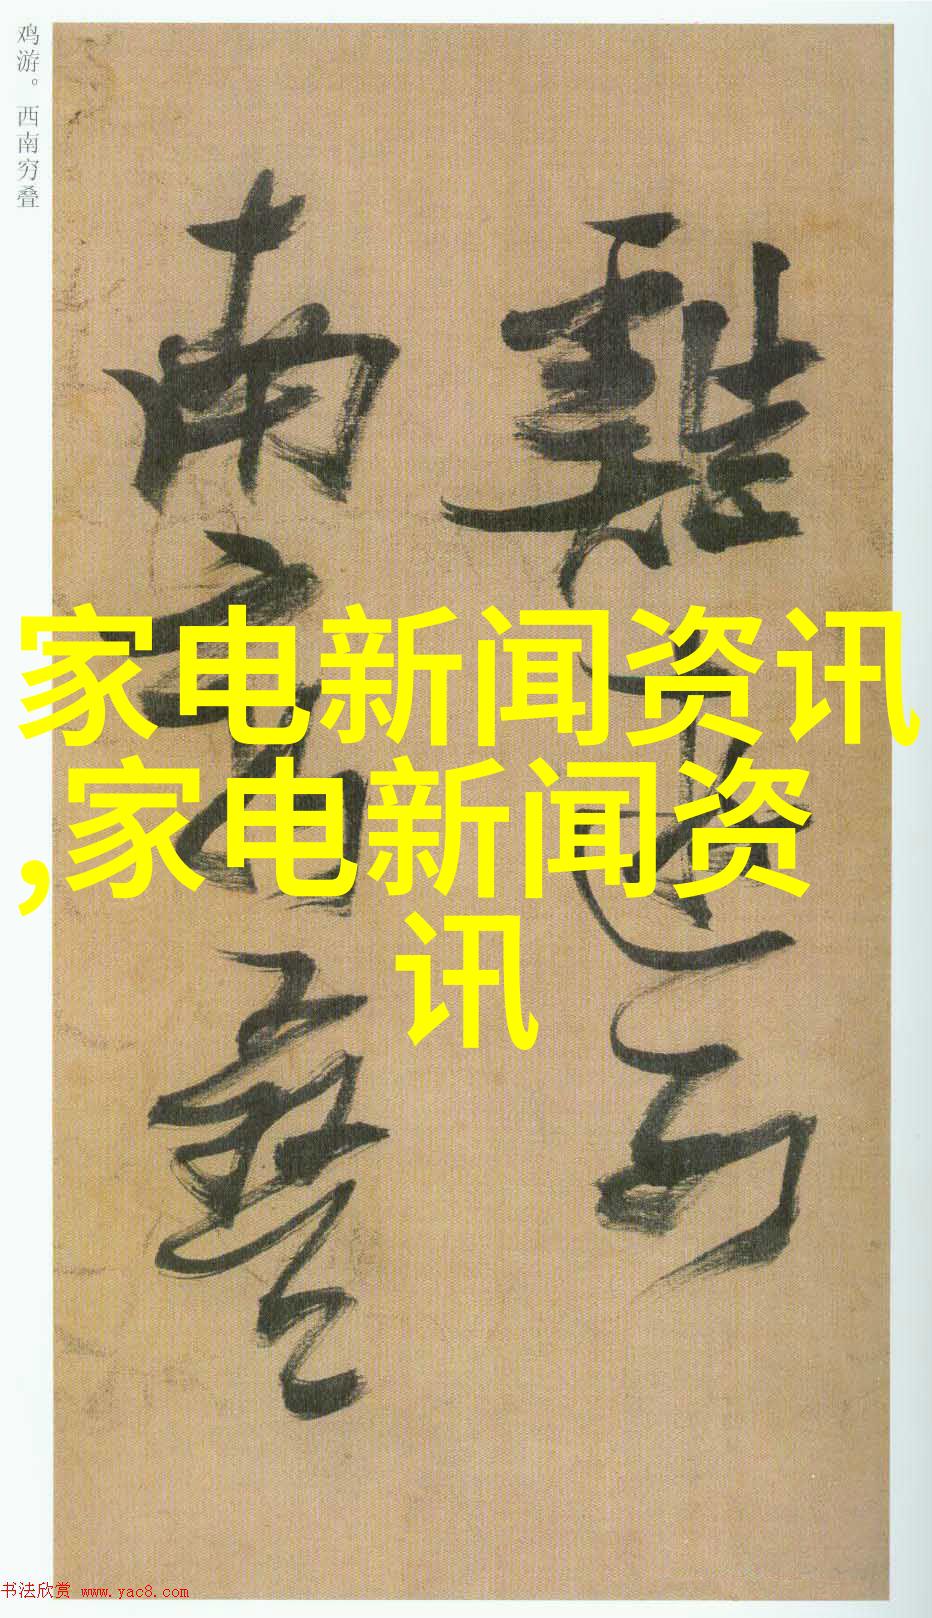 鸡游。西南穷叠
雞遊西
南窮疊
家电新闻资讯
,家电新闻资
讯
书法欣赏 www.yac8.com